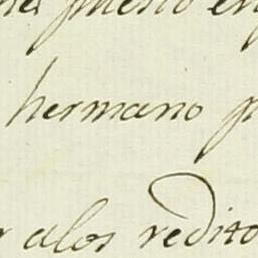 puesto en
hermano p
r alos redito